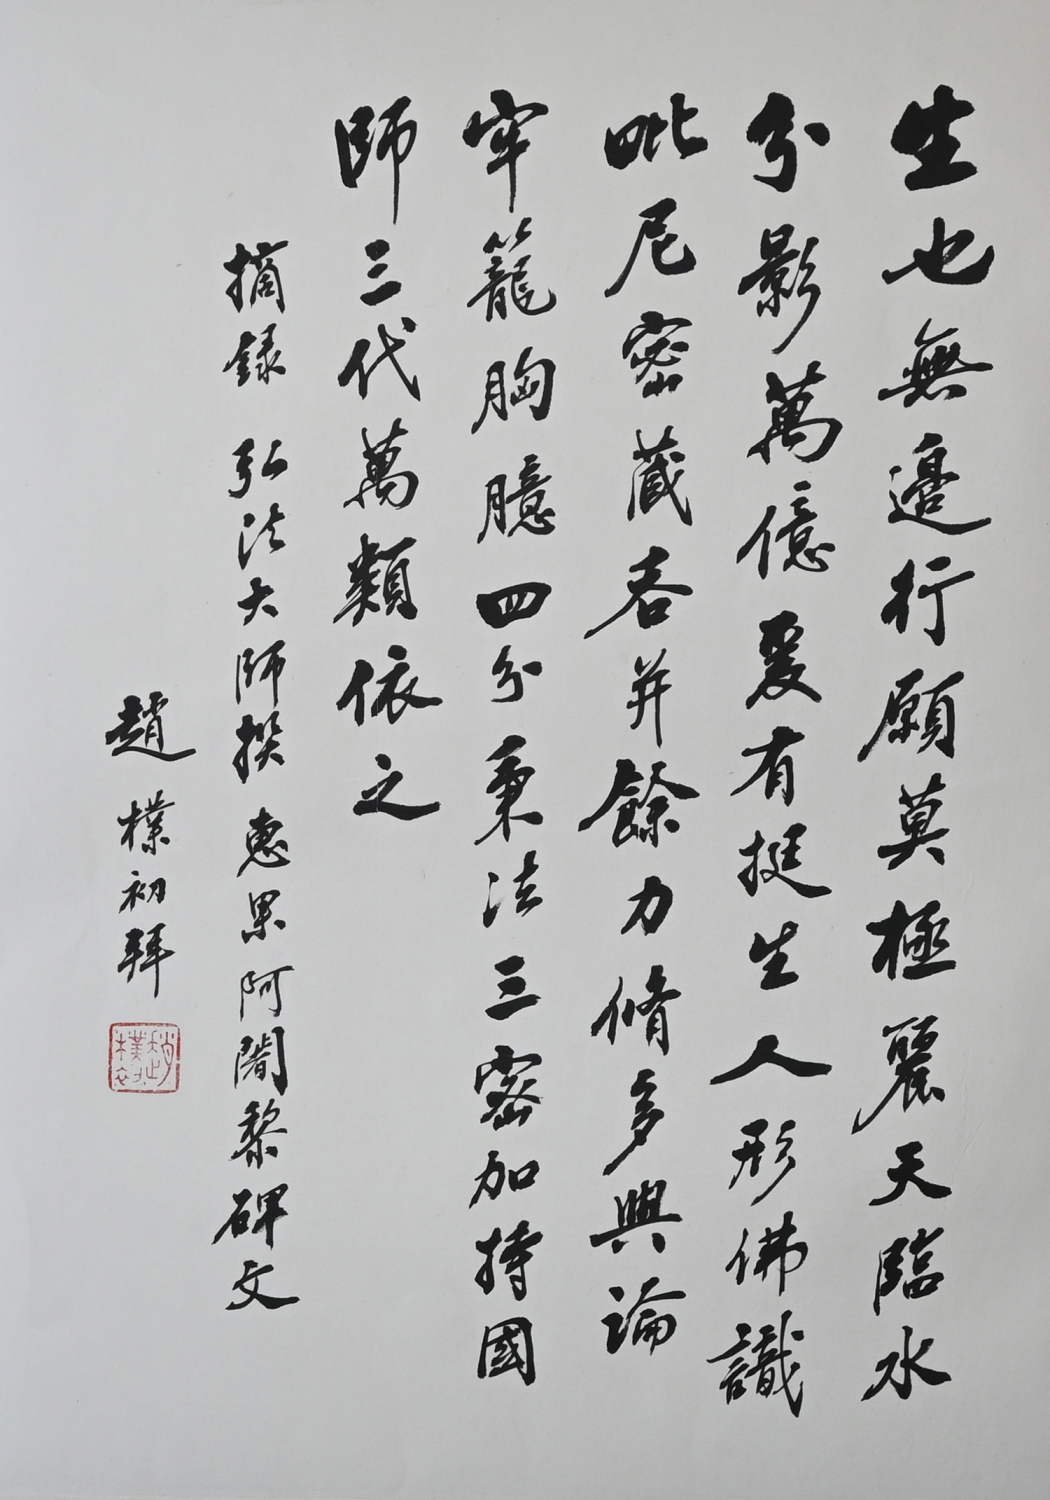 生也無邊行願莫極麗天臨水
分影萬億爰有挺生人形佛識
毗尼密藏吞并餘力脩多與論
牢籠胸臆四分秉法三密加持國
師三代萬類依之
摘録 弘法大師撰 惠果阿闍黎碑文
趙樸初拜
趙樸初